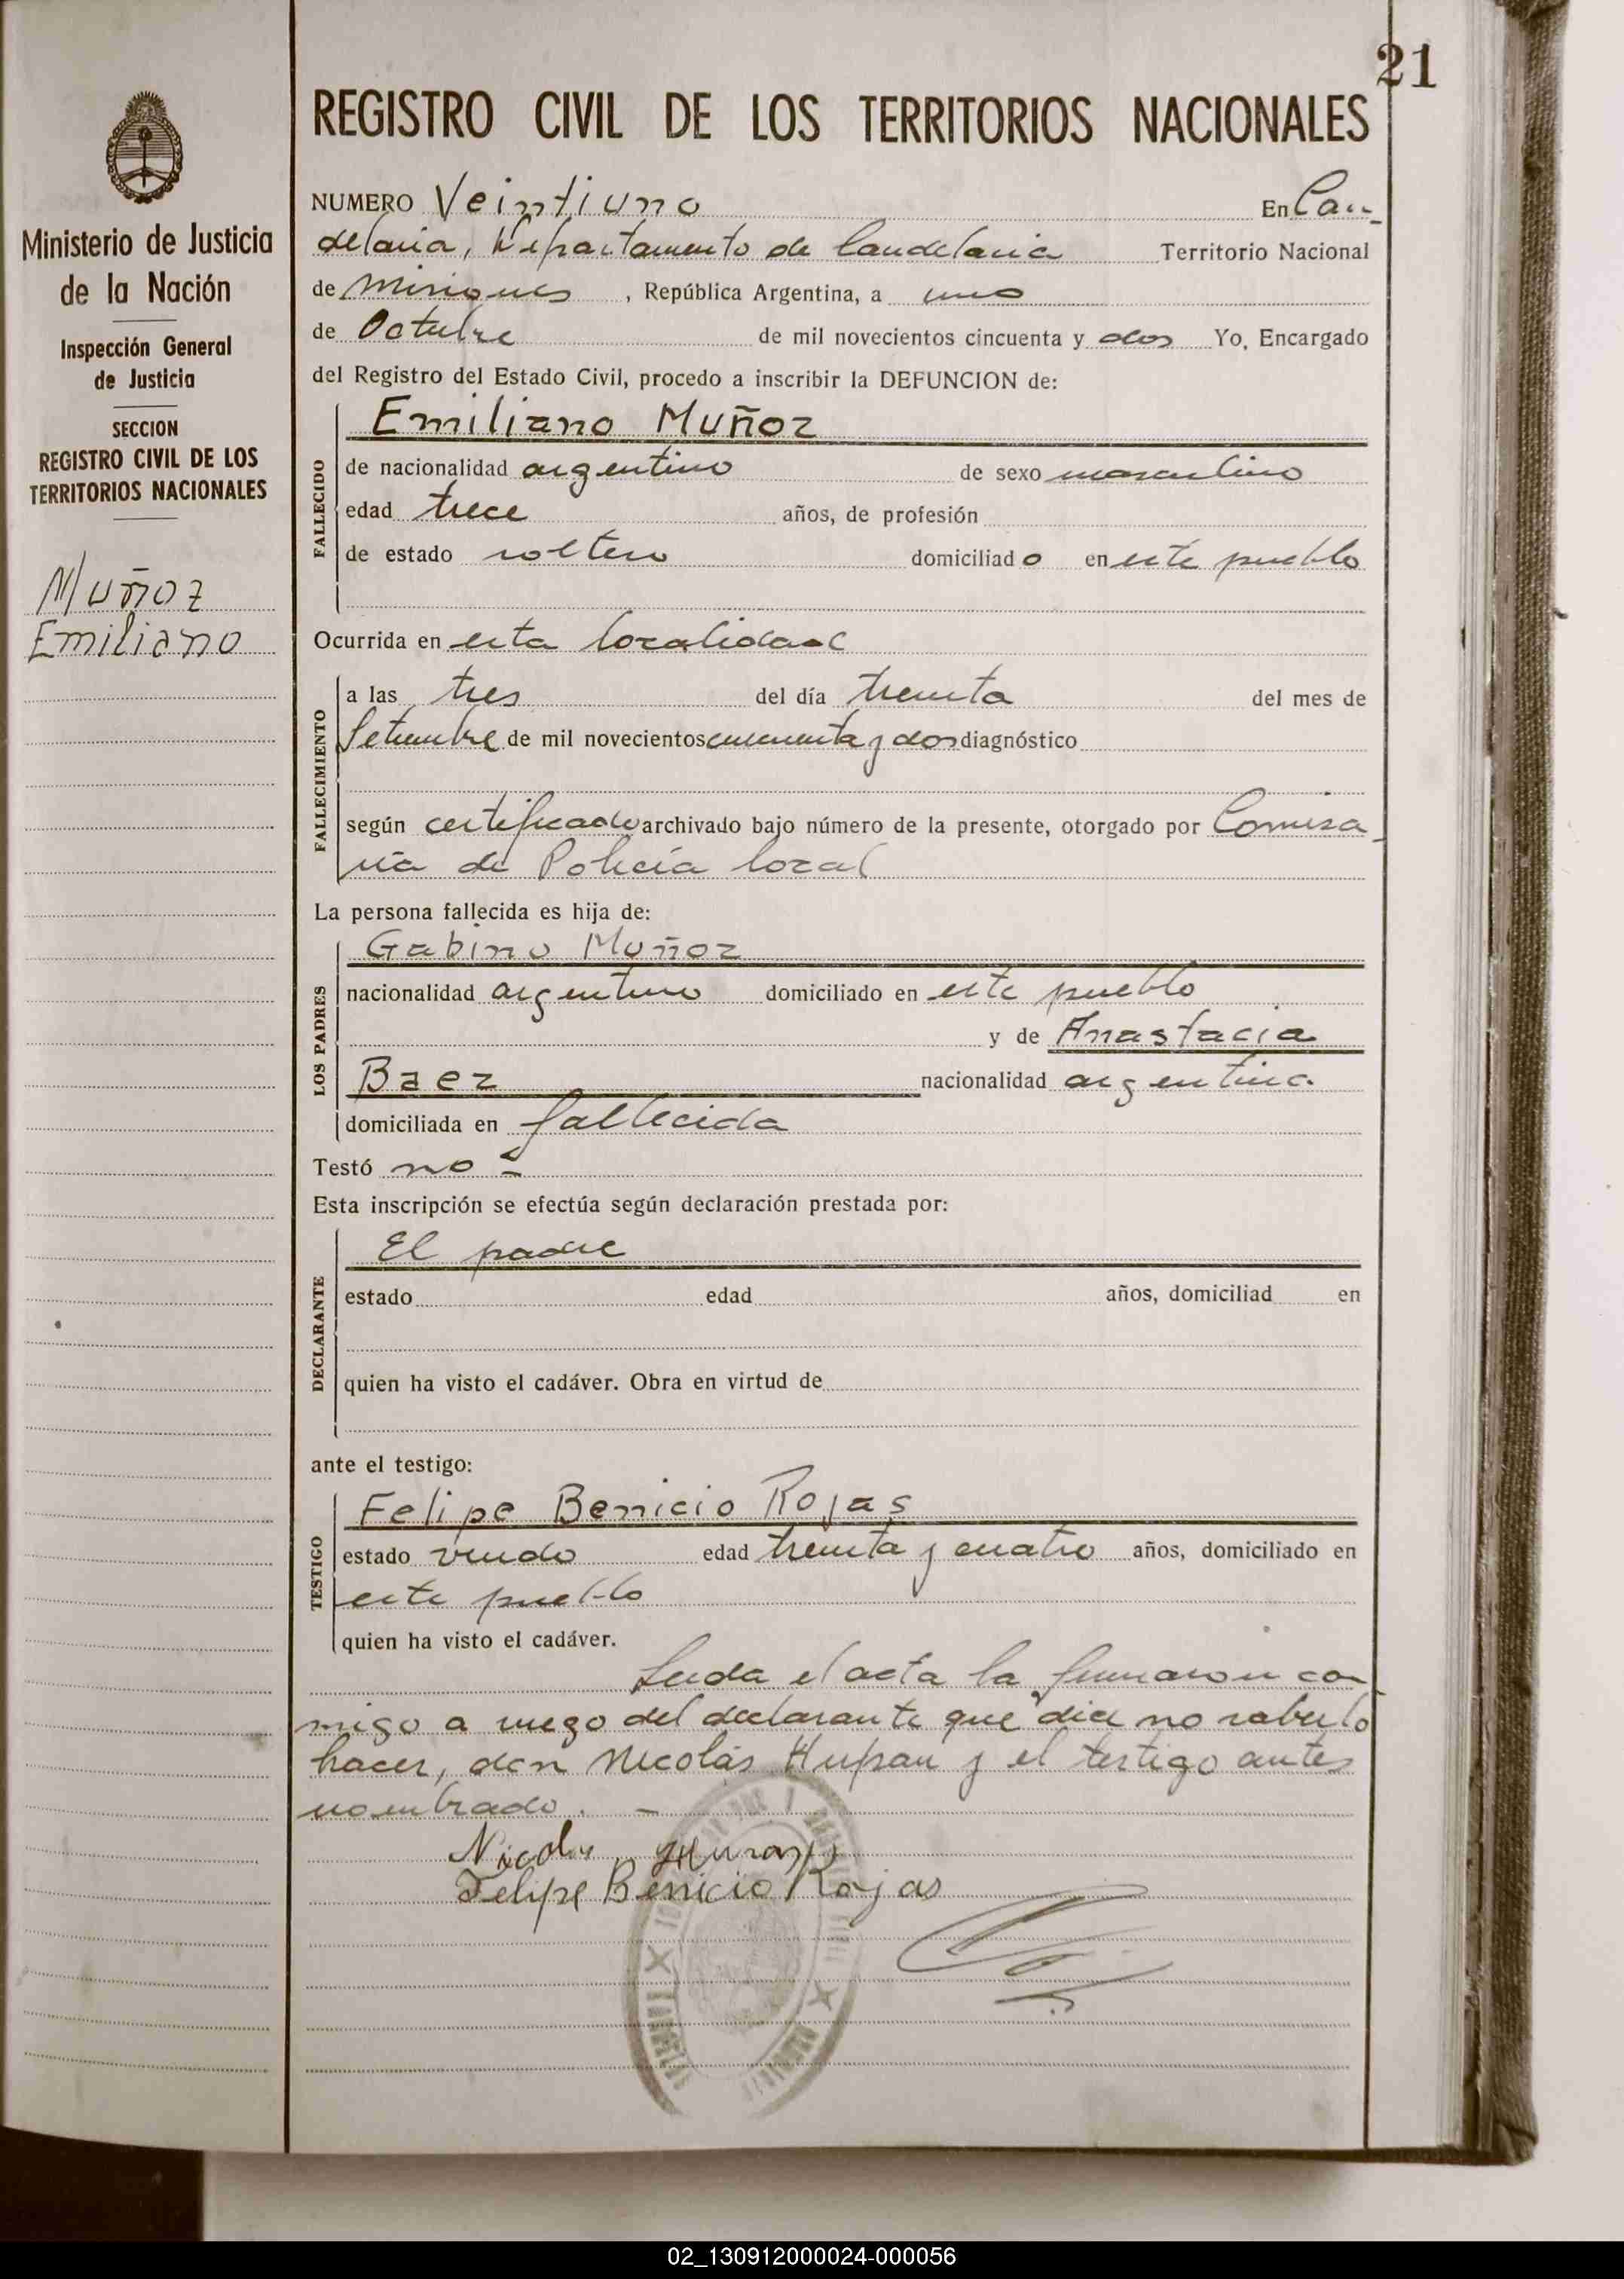 21
REGISTRO CIVIL DE LOS TERRITORIOS NACIONALES
Ministerio de Justicia
de la Nación
Inspección General
de Justicia
SECCION
REGISTRO CIVIL DE LOS
TERRITORIOS NACIONALES
Muñoz
Emiliano
NUMERO Veintiuno En Can-
delaria, Departamento de Candelaria Territorio Nacional
de Misiones, República Argentina, a uno
de Octubre de mil novecientos cincuenta y dos Yo, Encargado
del Registro del Estado Civil, procedo a inscribir la DEFUNCION de:
FALLECIDO
Emiliano Muñoz
de nacionalidad argentino de sexo masculino
edad trece años, de profesión
de estado soltero domiciliado en este pueblo
Ocurrida en esta localidad
FALLECIMIENTO
a las tres del día treinta del mes de
Setiembre de mil novecientos cincuenta y dos diagnóstico
según certificado archivado bajo número de la presente, otorgado por Comisa-
ría de Policía local
La persona fallecida es hija de:
LOS PADRES
Gabino Muñoz
nacionalidad argentino domiciliado en este pueblo
y de Anastacia
Baez nacionalidad argentina
domiciliada en fallecida
Testó no =
Esta inscripción se efectúa según declaración prestada por:
DECLARANTE
El padre
estado edad años, domiciliad en
quien ha visto el cadáver. Obra en virtud de
ante el testigo:
TESTIGO
Felipe Benicio Rojas
estado viudo edad treinta y cuatro años, domiciliado en
este pueblo
quien ha visto el cadáver.
Leida el acta la firmaron con-
migo a ruego del declarante que dice no saberlo
hacer, don Nicolás y el testigo antes
nombrado. -
Nicolas
Felipe Benicio Rojas
02_130912000024-000056